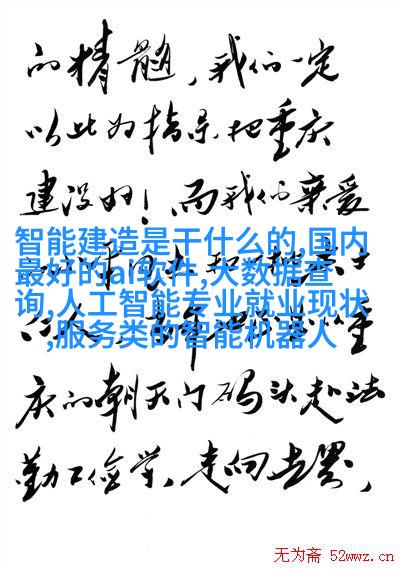 的精髓，我们一定
以此为指导把重庆
建设好！而我们亲爱
智能建造是干什么的,国内
最好的ai软件,大数据查
询,人工智能专业就业现状
,服务类的智能机器人
庆的朝天门码头赴法
勤工俭学，走向世界，
无为斋 52wwz.cn